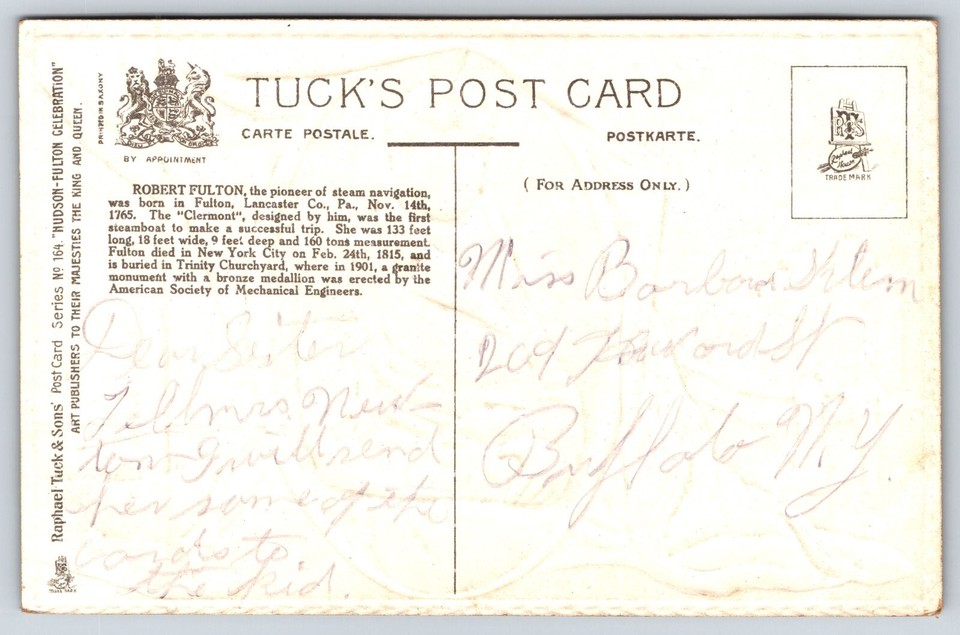 TUCK'S POST CARD
CARTE POSTALE.
POSTKARTE.
BY APPOINTMENT
PRINTED IN SAXONY
(FOR ADDRESS ONLY.)
RTS
Raphael
House
TRADE MARK
ROBERT FULTON, the pioneer of steam navigation,
was born in Fulton, Lancaster Co., Pa., Nov. 14th,
1765. The "Clermont", designed by him, was the first
steamboat to make a successful trip. She was 133 feet
long, 18 feet wide, 9 feet deep and 160 tons measurement.
Fulton died in New York City on Feb. 24th, 1815, and
is buried in Trinity Churchyard, where in 1901, a granite
monument with a bronze medallion was erected by the
American Society of Mechanical Engineers.
Raphael Tuck & Sons' Post Card Series No 164. "HUDSON-FULTON CELEBRATION"
ART PUBLISHERS TO THEIR MAJESTIES THE KING AND QUEEN.
TRADE MARK
Dear Sister
Tell mrs New-
ton I will send
her some of the
cards to
the kid.
Miss Barbara Klem
209 St
Buffalo N.Y.